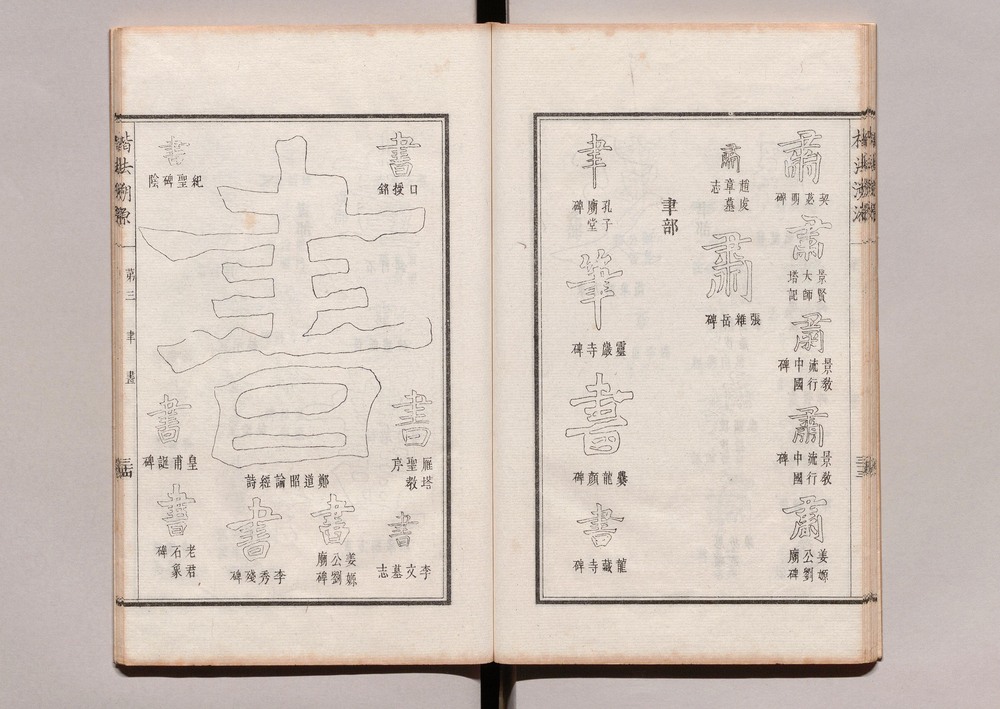 肅
契苾明碑
肅
景賢大師塔記
肅
景教流行中國碑
肅
景教流行中國碑
肅
姜嫄公劉廟碑
肅
肅
張維岳碑
聿部
聿
孔子廟堂碑
筆
靈巖寺碑
書
爨龍顏碑
書
龍藏寺碑
書
口授銘
書
雁塔聖教序
書
李文墓志
書
鄭道昭論經詩
書
姜嫄公劉廟碑
書
李秀殘碑
書
紀聖碑陰
書
皇甫誕碑
書
老君石象碑
楷法溯源
第三
聿